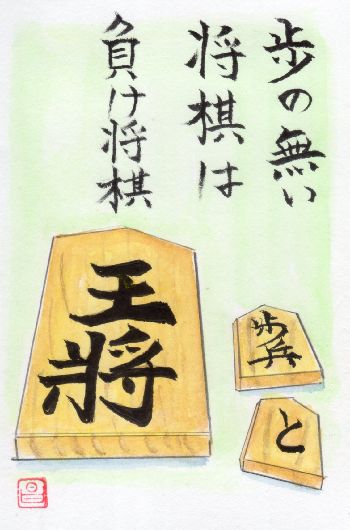 歩の無い
将棋は
負け将棋
王将
歩兵
と